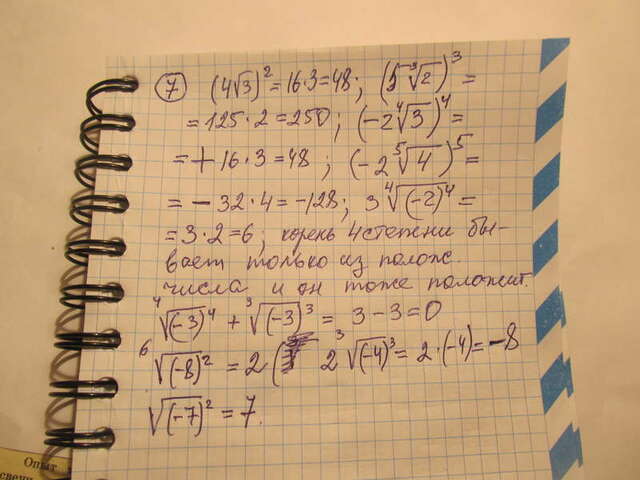 7 (4√3)² = 16·3 = 48; (5∛2)³ =
= 125·2 = 250; (-2∜3)⁴ =
= + 16·3 = 48; (-2⁵√4)⁵ =
= - 32·4 = -128; 3∜(-2)⁴ =
= 3·2 = 6; корень 4 степени бы-
вает только из полож.
числа и он тоже положит.
∜(-3)⁴ + ∛(-3)³ = 3 - 3 = 0
⁶√(-8)² = 2 ( 2∛(-4)³ = 2·(-4) = -8
√(-7)² = 7.
Опыт